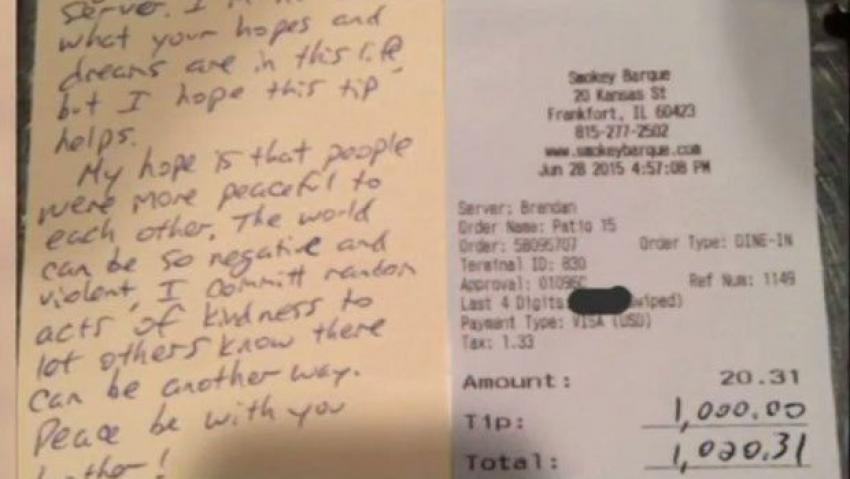 server. I
what your hopes and
dreams are in this life
but I hope this tip
helps.
My hope is that people
were more peaceful to
each other. The world
can be so negative and
violent, I committ random
acts of kindness to
let others know there
can be another way.
Peace be with you
brother!
Smokey Barque
20 Kansas St
Frankfort, IL 60423
815-277-2502
www.smokeybarque.com
Jun 28 2015 4:57:08 PM
Server: Brendan
Order Name: Patio 15
Order: 58095707 Order Type: DINE-IN
Terminal ID: 830
Approval: 01096C Ref Num: 1149
Last 4 Digits wiped)
Payment Type: VISA (USD)
Tax: 1.33
Amount: 20.31
Tip: 1,000.00
Total: 1,020.31